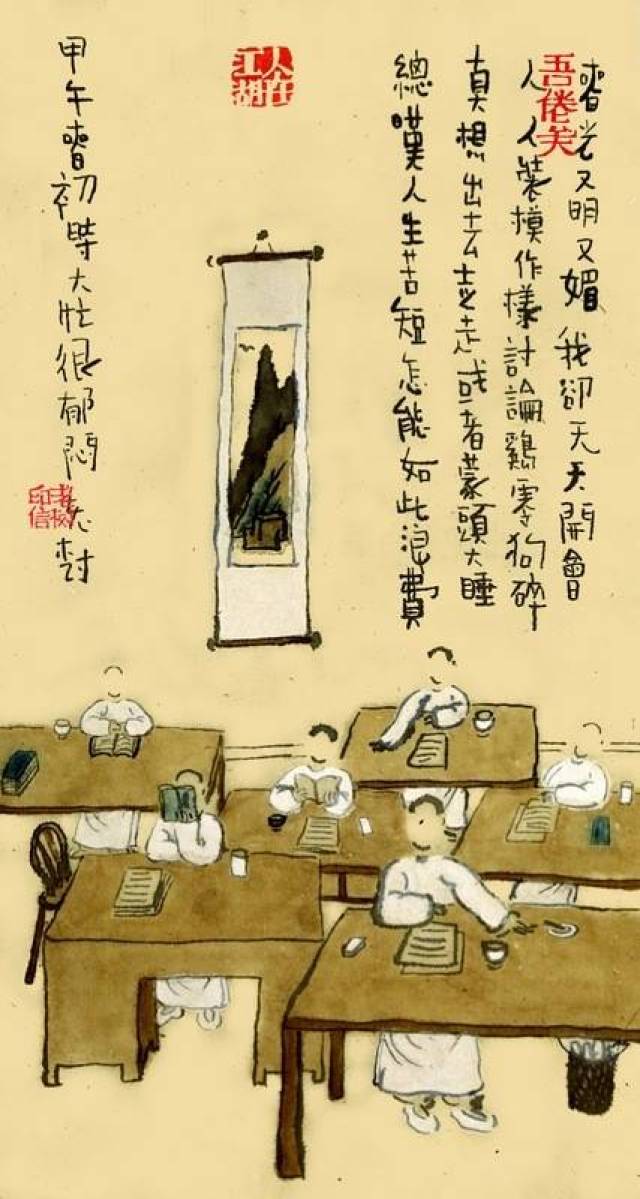 春光又明又媚 我卻天天開會
人人裝模作樣 討論鷄零狗碎
真想出去走走或者蒙頭大睡
總嘆人生苦短 怎能如此浪費
人在江湖
甲午春初時大壯很郁悶 老树
老樹印信